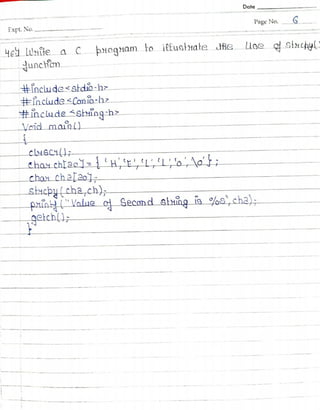 Date
Page No. 6
Expt. No.
Write a C program to illustrate the Use of strcpy(
function
#include<stdio.h>
#include<Conio.h>
#include <string.h>
Void main()
{
clrscr();
char ch[20]={'H','E','L','L','O','\0'};
char ch2[20];
strcpy(ch2,ch);
printf("Value of Second string is %s",ch2);
getch();
}